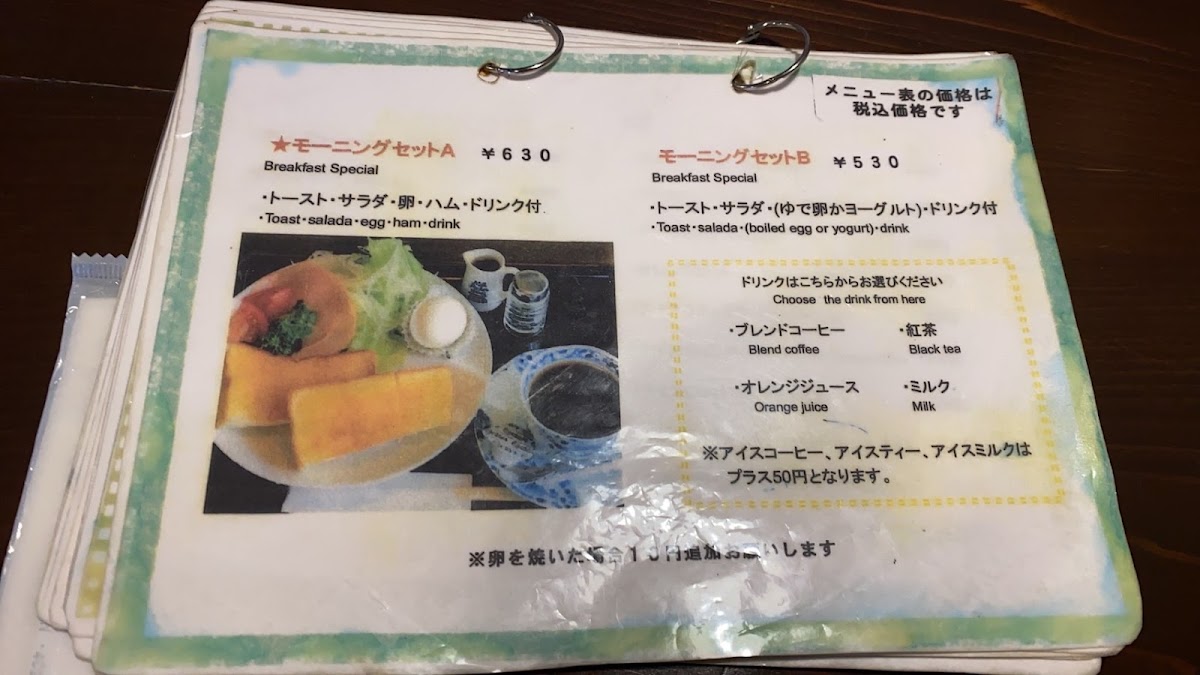 メニュー表の価格は
税込価格です
★モーニングセットA ¥630
Breakfast Special
・トースト・サラダ・卵・ハム・ドリンク付
・Toast・salada・egg・ham・drink
モーニングセットB ¥530
Breakfast Special
・トースト・サラダ・(ゆで卵かヨーグルト)・ドリンク付
・Toast・salada・(boiled egg or yogurt)・drink
ドリンクはこちらからお選びください
Choose the drink from here
・ブレンドコーヒー ・紅茶
Blend coffee Black tea
・オレンジジュース ・ミルク
Orange juice Milk
※アイスコーヒー、アイスティー、アイスミルクは
プラス50円となります。
※卵を焼いた場合 円追加お願いします